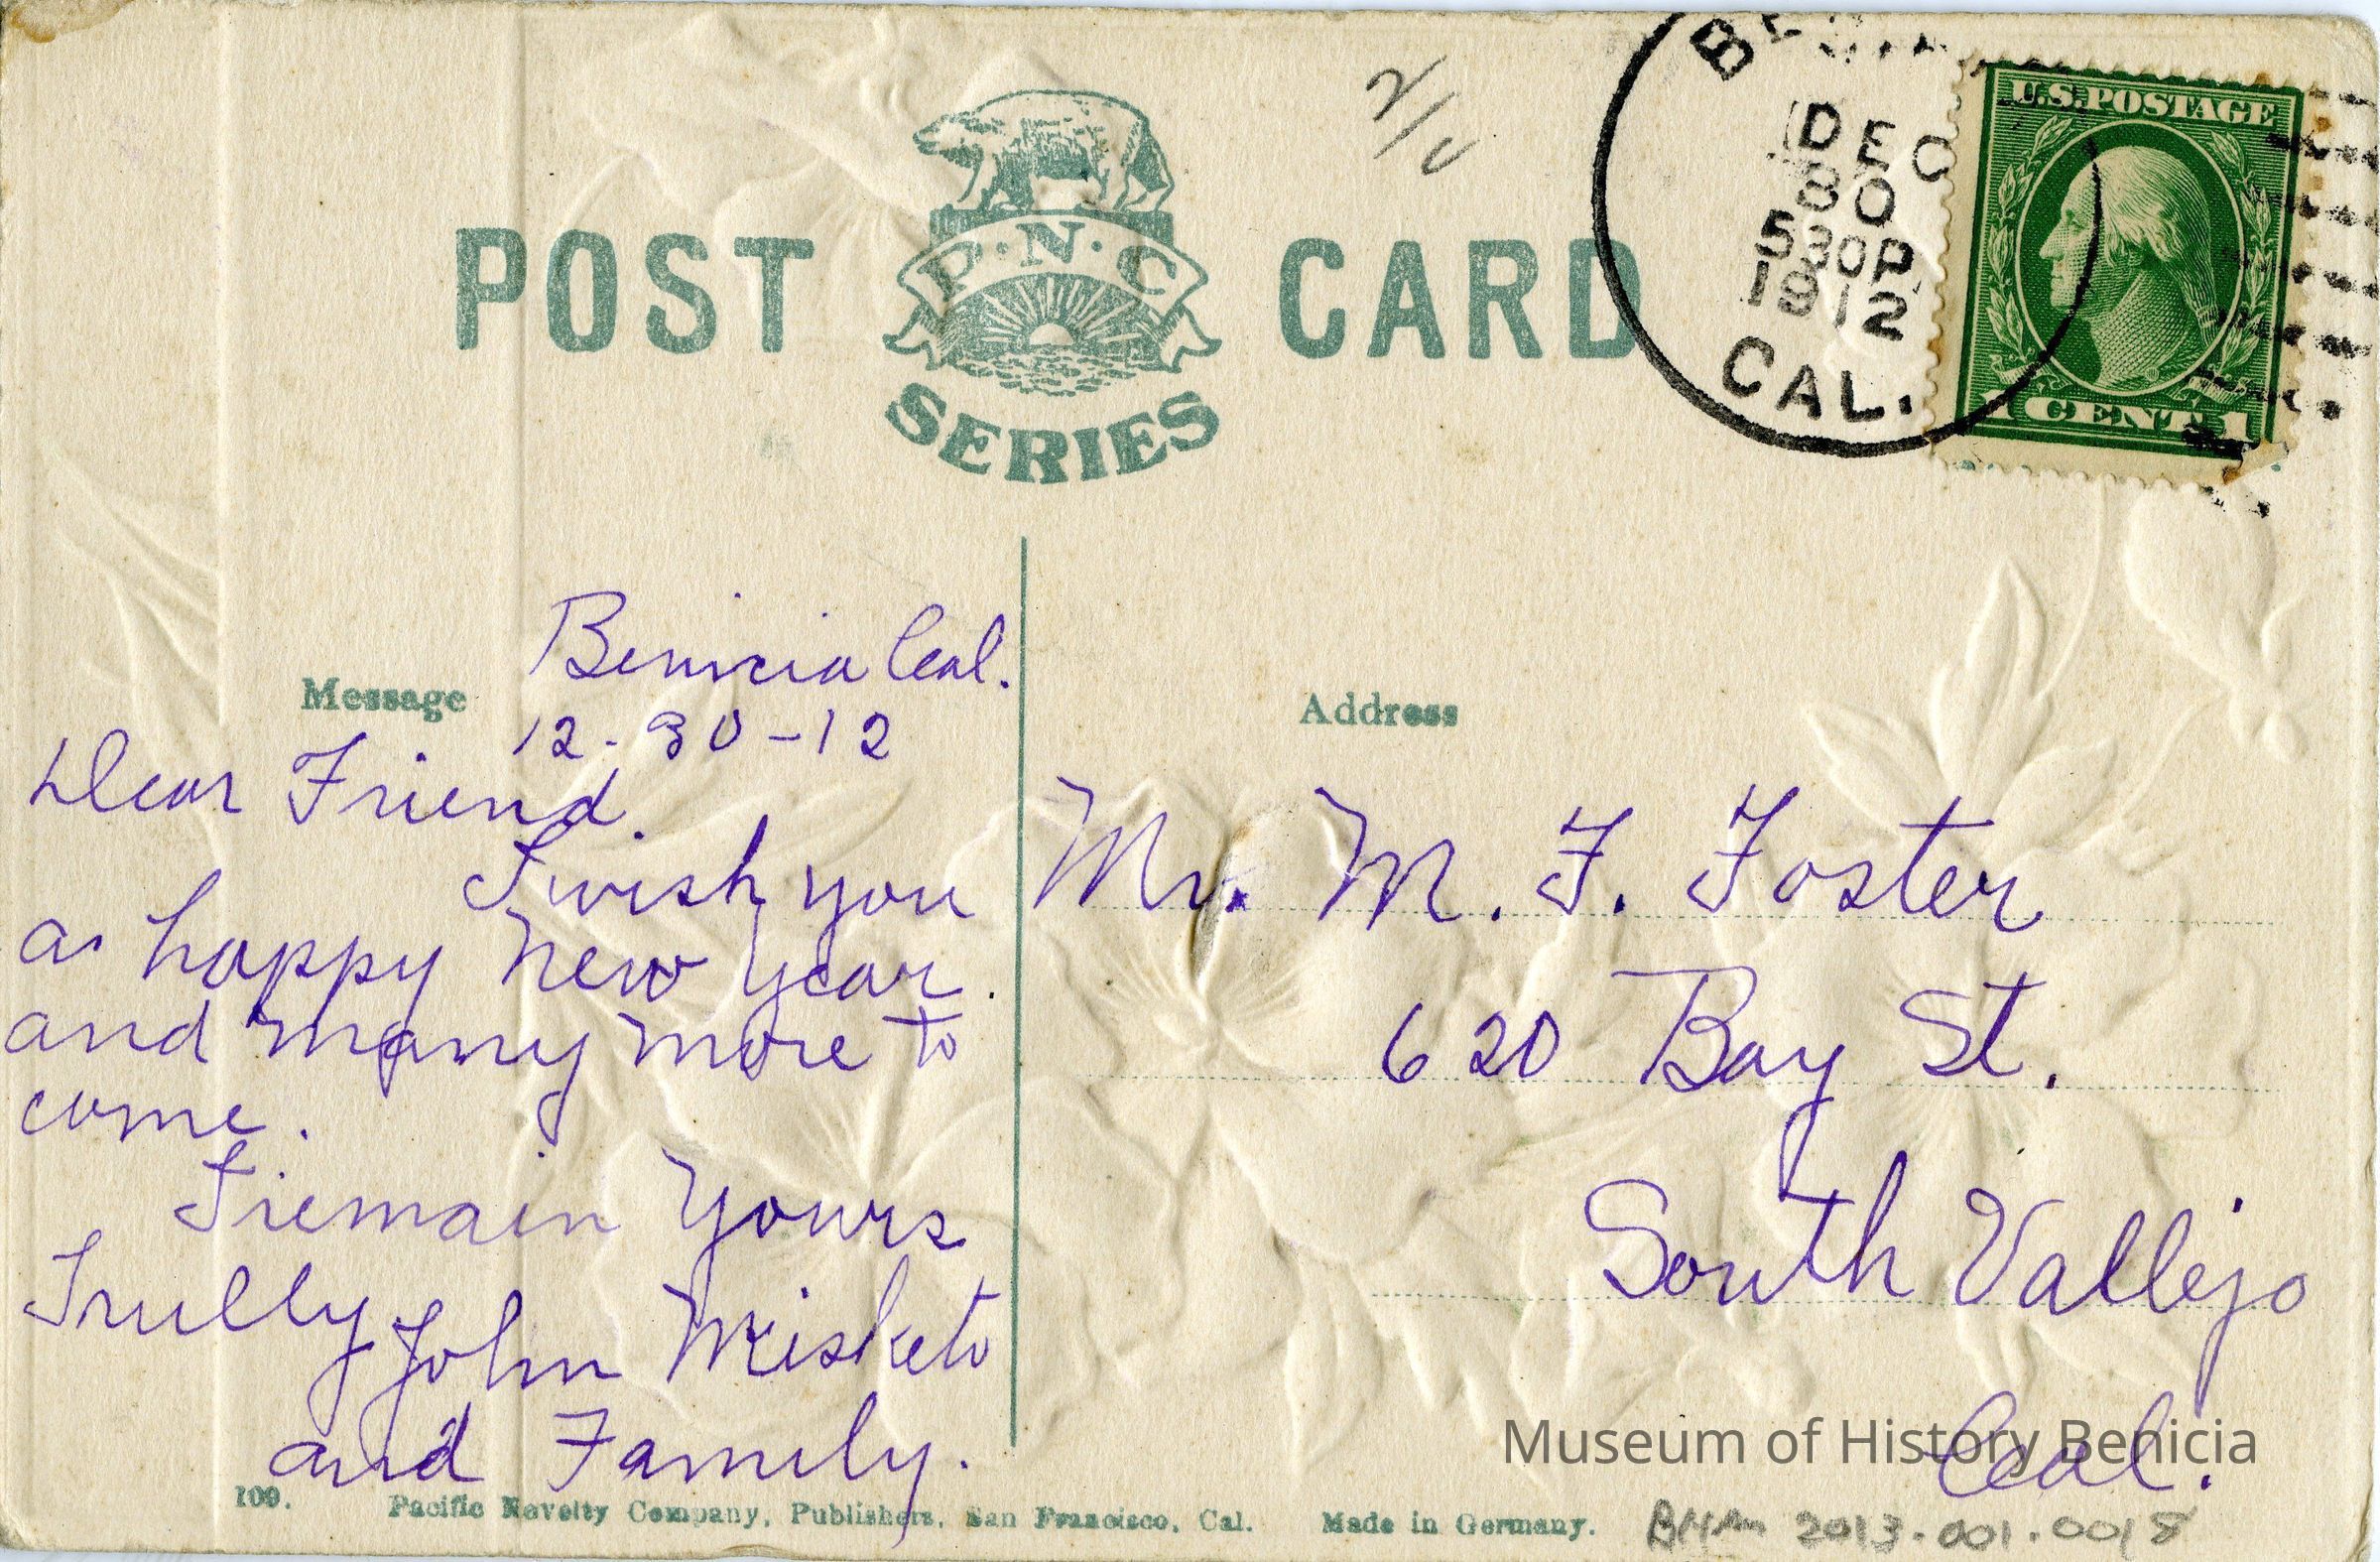 POST CARD
P·N·C
SERIES
2/c
DEC
30
530P
1912
CAL.
U.S. POSTAGE
1 CENT 1
Message
Benicia Cal.
12-30-12
Dear Friend.
I wish you
a happy New Year.
and many more to
come.
I remain Yours
Trully
John Misketo
and Family.
Address
Mr. M. F. Foster
620 Bay St.
South Vallejo
Cal.
Museum of History Benicia
109. Pacific Novelty Company, Publishers, San Francisco, Cal. Made in Germany.
2013.001.0018